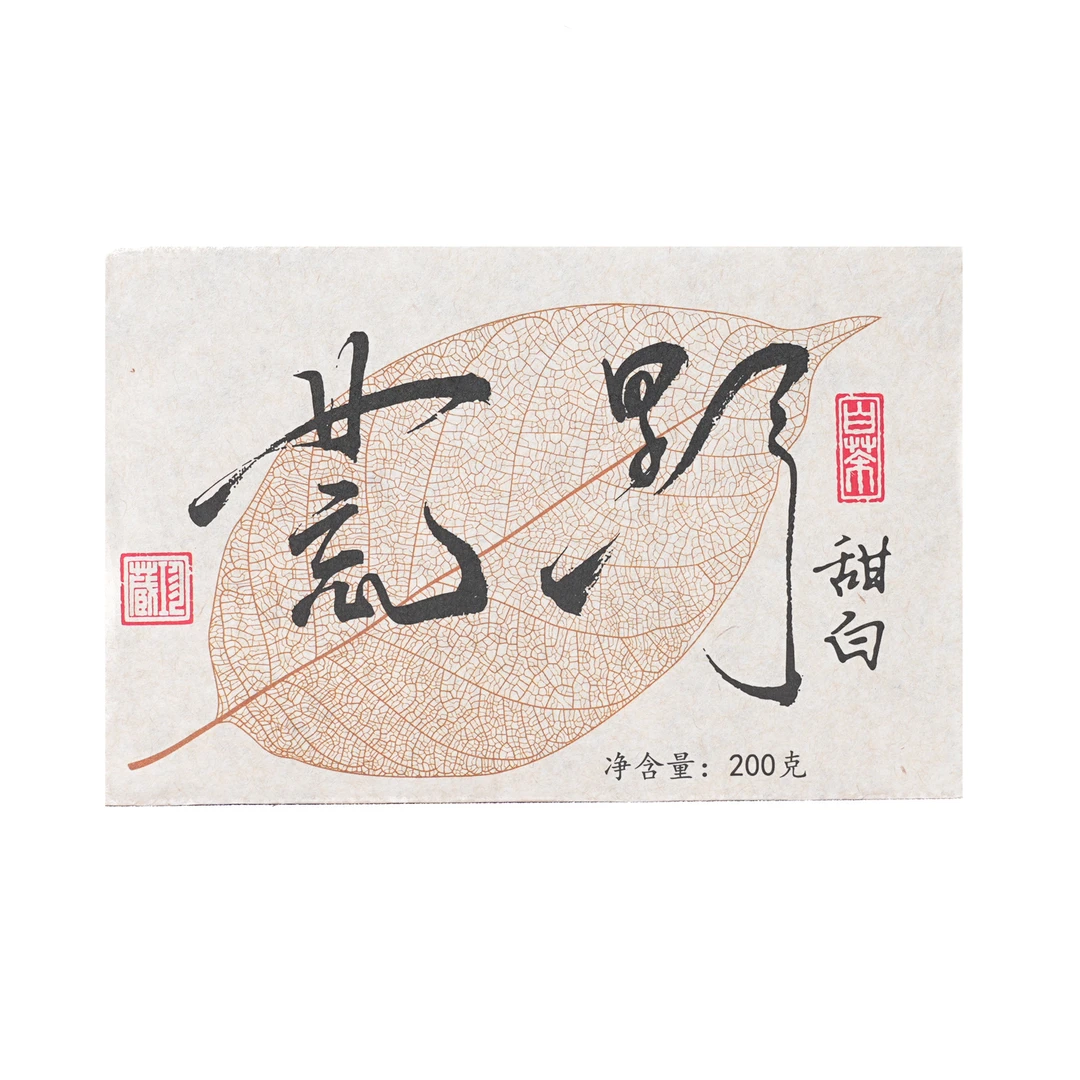 荒野
白茶
甜白
珍藏
净含量：200克